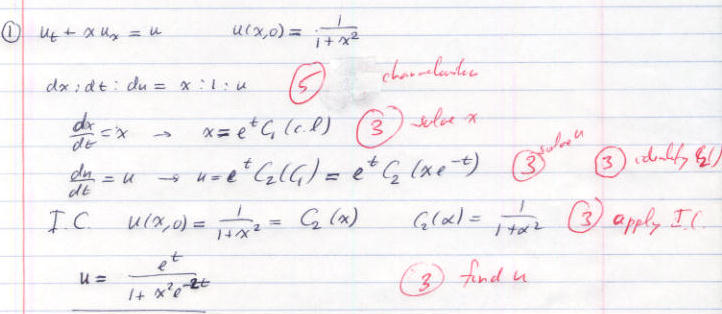 ① u_t + x u_x = u    u(x,0) = 1/(1+x²)
dx : dt : du = x : 1 : u    ⑤ characteristics
dx/dt = x → x = e^t C₁ (c.l)    ③ solve x
du/dt = u → u = e^t C₂(C₁) = e^t C₂(xe^{-t})    ③ solve u    ③ identify C₂()
I.C.    u(x,0) = 1/(1+x²) = C₂(x)    C₂(α) = 1/(1+α²)    ③ apply I.C.
u = e^t/(1+x²e^{-2t})    ③ find u